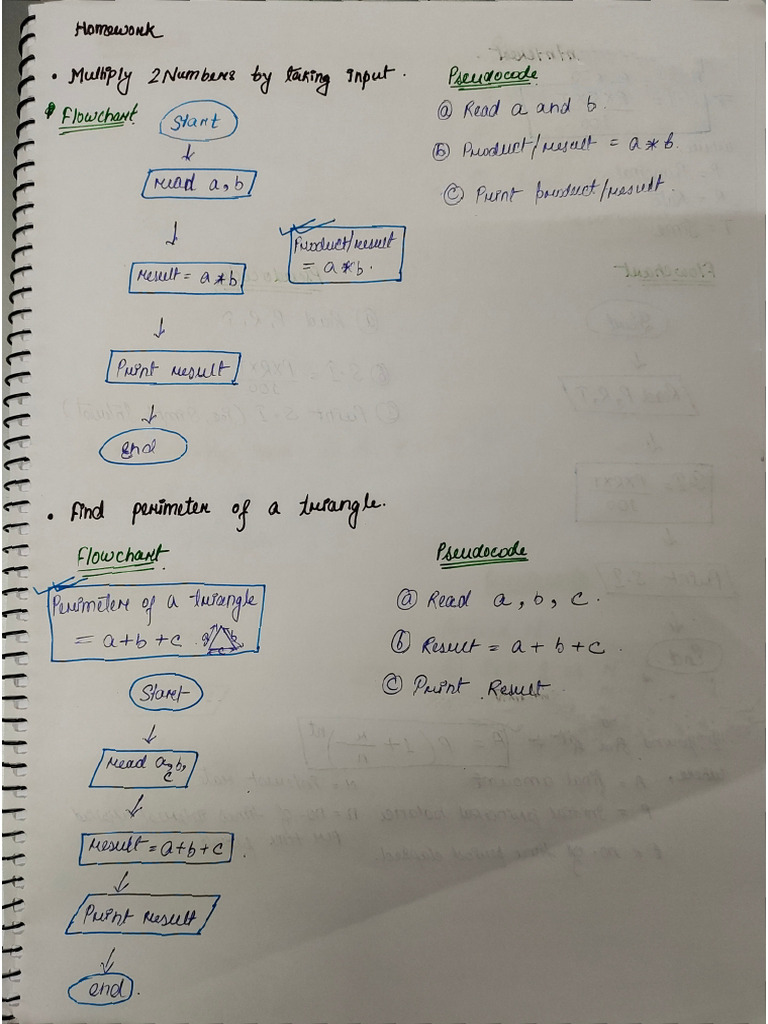 Homework
• Multiply 2 Numbers by taking input.
Flowchart
Start
read a, b
Result = a * b
Product/result
= a * b.
Print result
end
Pseudocode
ⓐ Read a and b.
ⓑ Product/result = a * b.
ⓒ Print product/result.
• Find perimeter of a triangle.
Flowchart
Perimeter of a triangle
= a + b + c
Start
read a, b,
c
Result = a + b + c
Print result
end.
Pseudocode
ⓐ Read a, b, c.
ⓑ Result = a + b + c.
ⓒ Print Result.